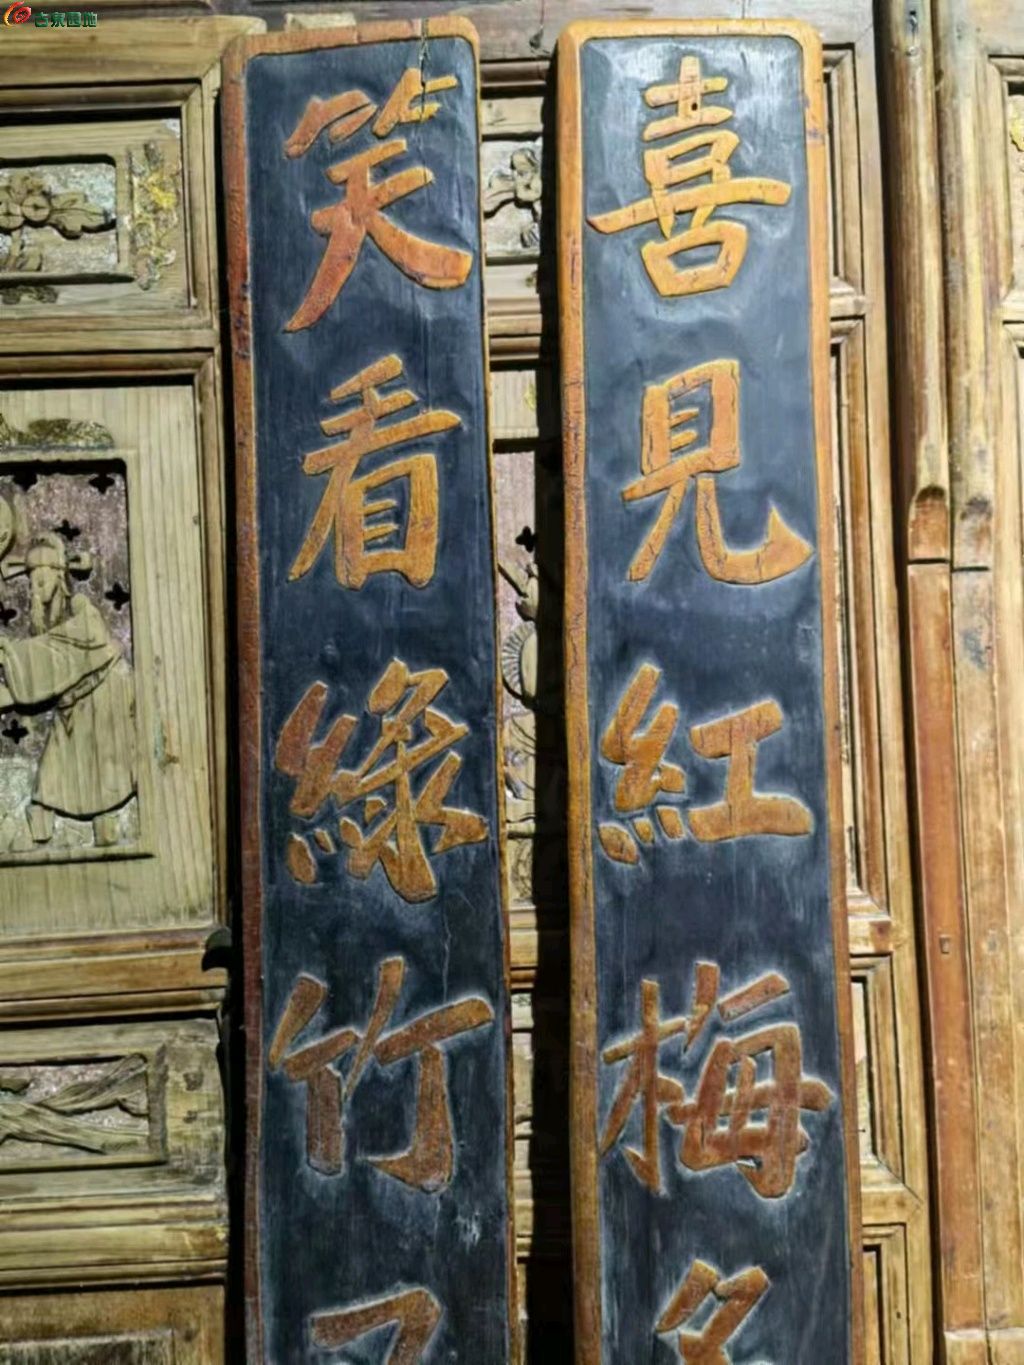 古泉园地
喜見紅梅多
笑看綠竹又